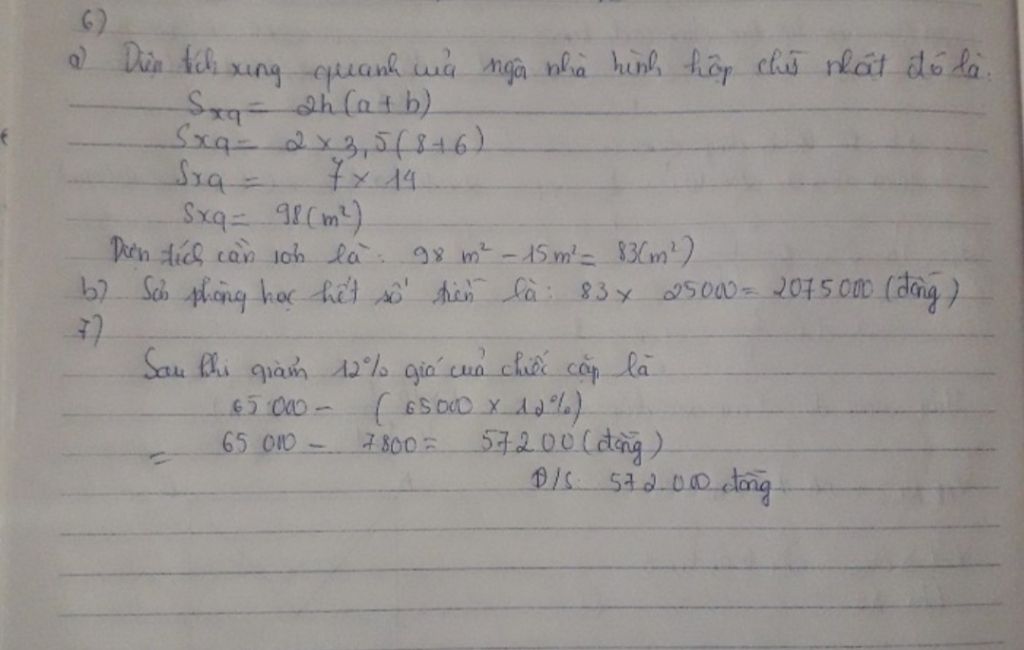 6)
a) Diện tích xung quanh của ngôi nhà hình hộp chữ nhật đó là.
Sxq = 2h(a+b)
Sxq = 2 × 3,5(8+6)
Sxq = 7 × 14
Sxq = 98(m²)
Diện tích cần sơn là: 98 m² - 15m² = 83(m²)
b) Sơn phòng học hết số tiền là: 83 × 25000 = 2075000 (đồng)
7)
Sau khi giảm 12% giá của chiếc cặp là
65 000 - (65000 × 12%)
= 65 000 - 7800 = 57200 (đồng)
Đ/S: 572.000 đồng